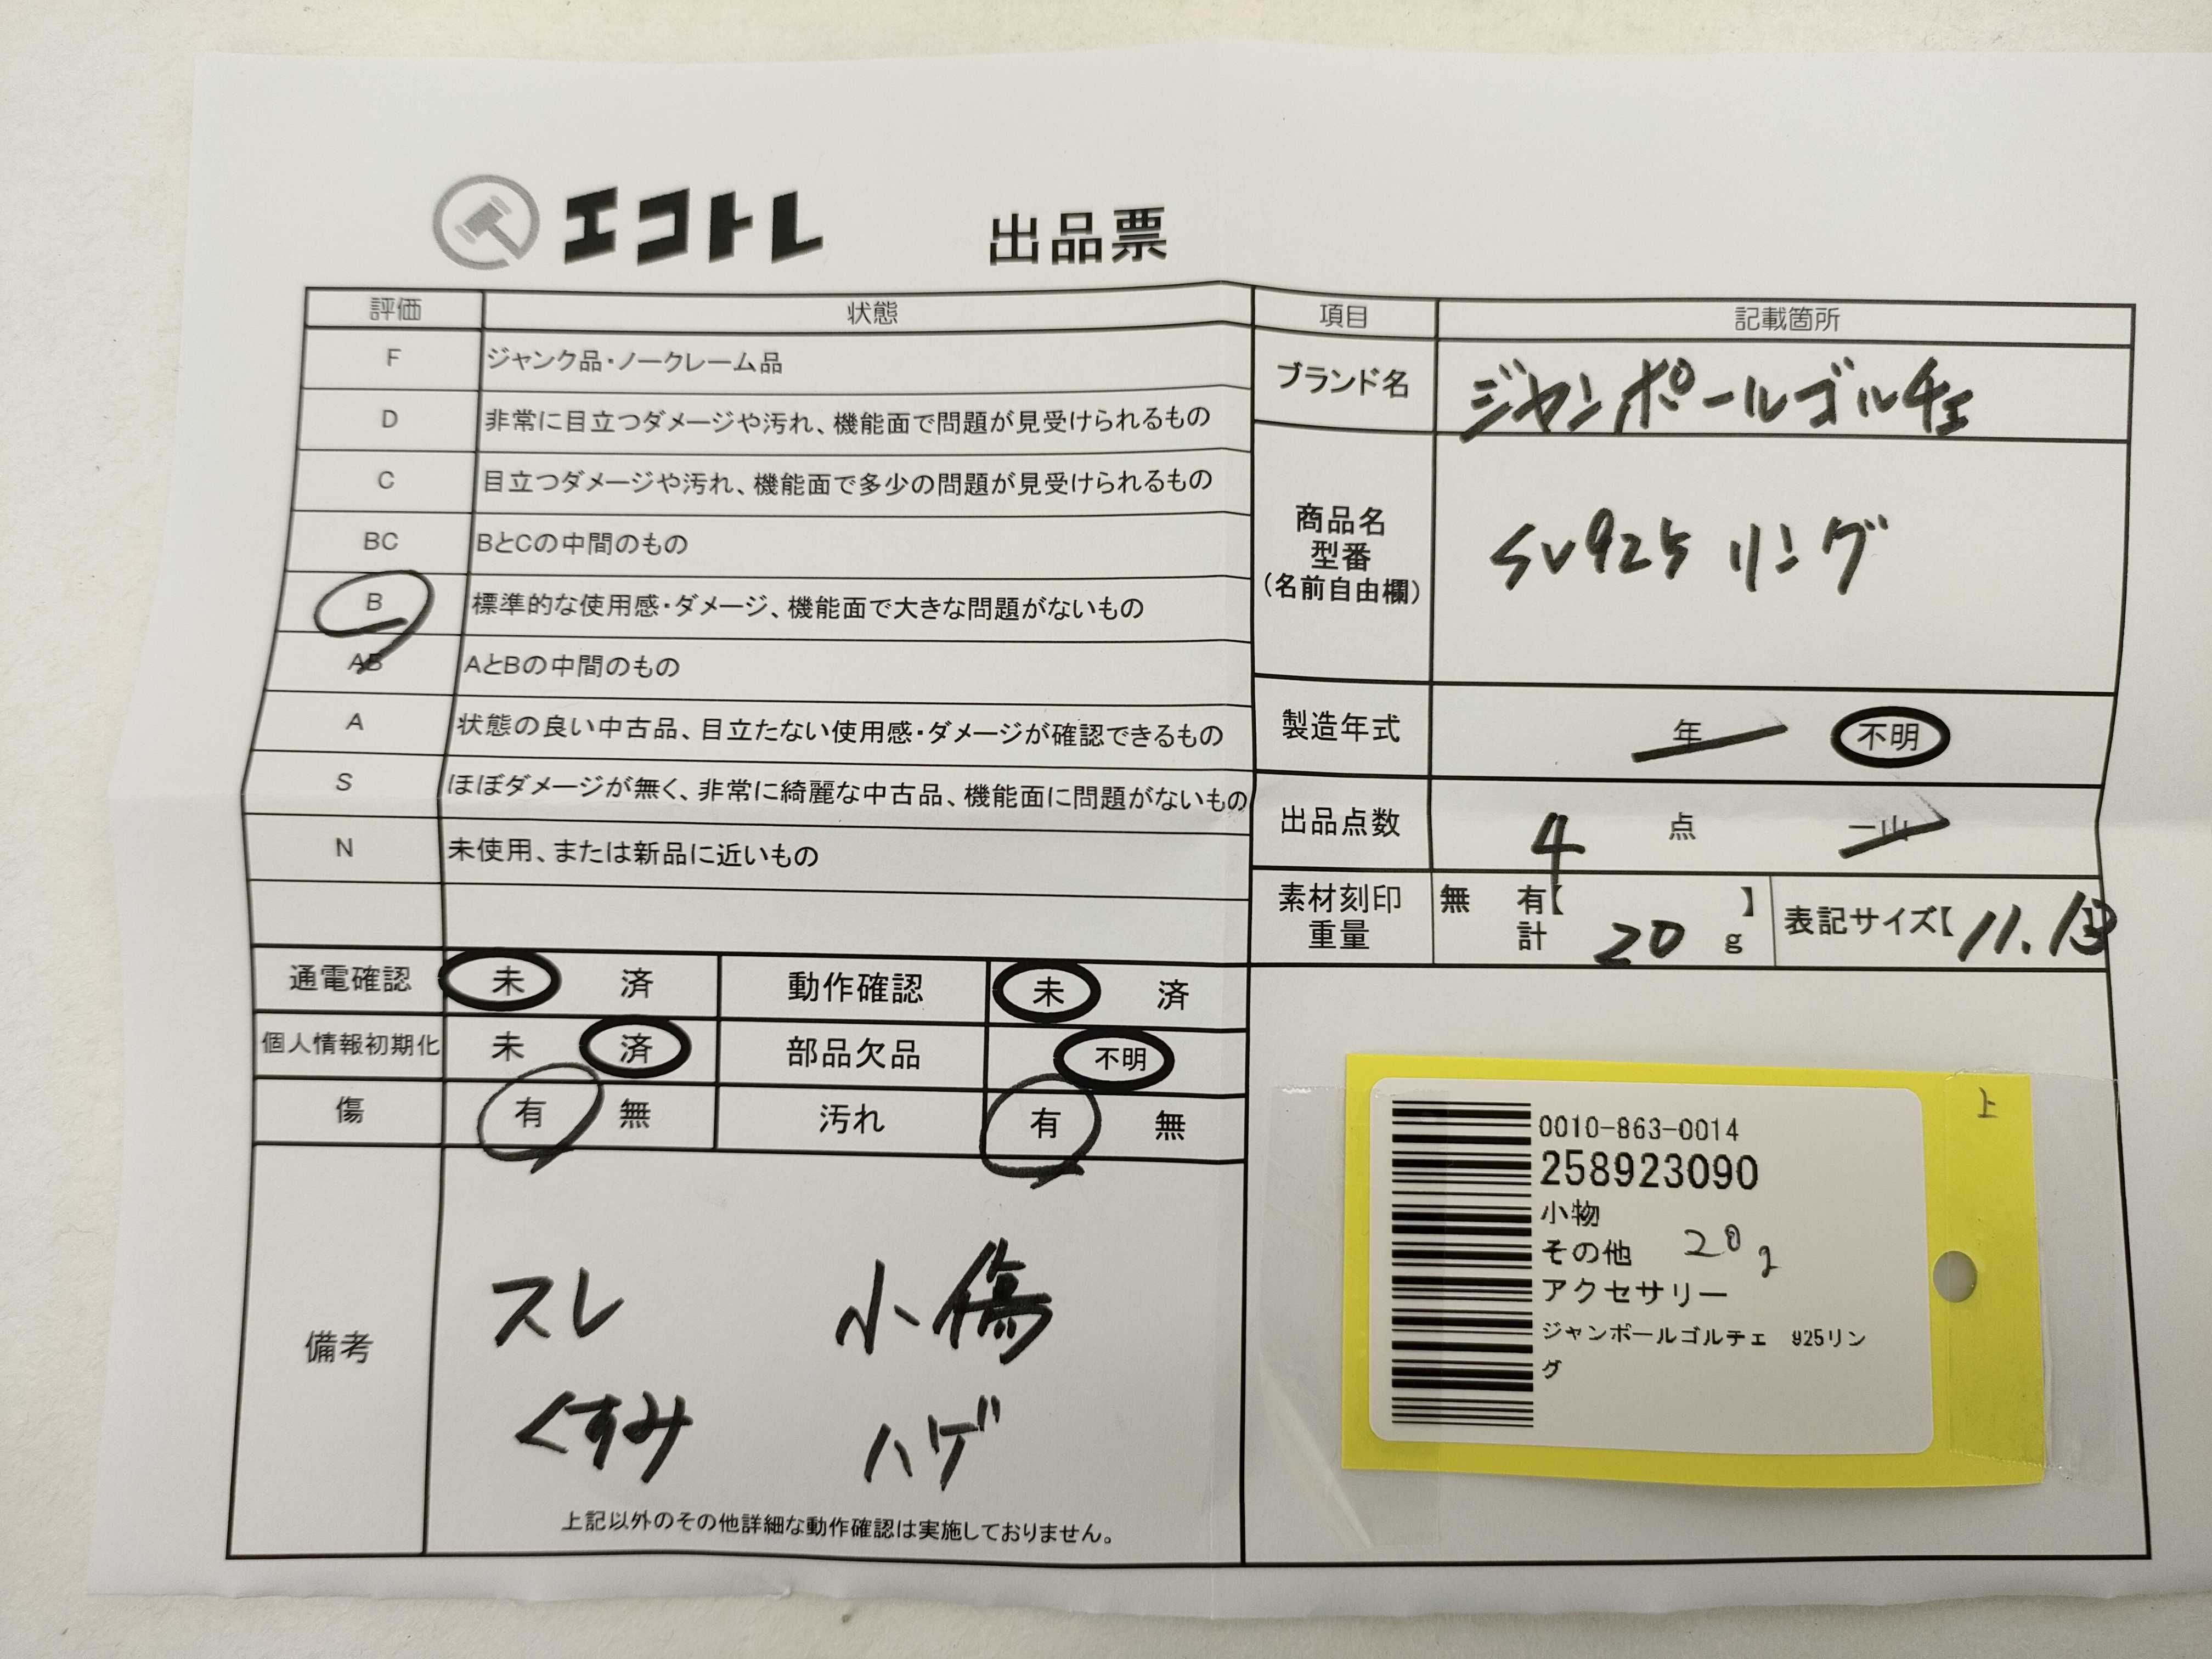 エコトレ 出品票
評価 状態
F ジャンク品・ノークレーム品
D 非常に目立つダメージや汚れ、機能面で問題が見受けられるもの
C 目立つダメージや汚れ、機能面で多少の問題が見受けられるもの
BC BとCの中間のもの
B 標準的な使用感・ダメージ、機能面で大きな問題がないもの
AB AとBの中間のもの
A 状態の良い中古品、目立たない使用感・ダメージが確認できるもの
S ほぼダメージが無く、非常に綺麗な中古品、機能面に問題がないもの
N 未使用、または新品に近いもの
通電確認 未 済 動作確認 未 済
個人情報初期化 未 済 部品欠品 不明
傷 有 無 汚れ 有 無
備考
スレ 小傷
くすみ ハゲ
上記以外のその他詳細な動作確認は実施しておりません。
項目 記載箇所
ブランド名 ジャンポールゴルチェ
商品名
型番
(名前自由欄)
SV925 リング
製造年式 年 不明
出品点数 4 点 一山
素材刻印 無 有【 】
重量 計 20 g
表記サイズ【 11.
上
0010-863-0014
258923090
小物
その他 20g
アクセサリー
ジャンポールゴルチェ 925リン
グ